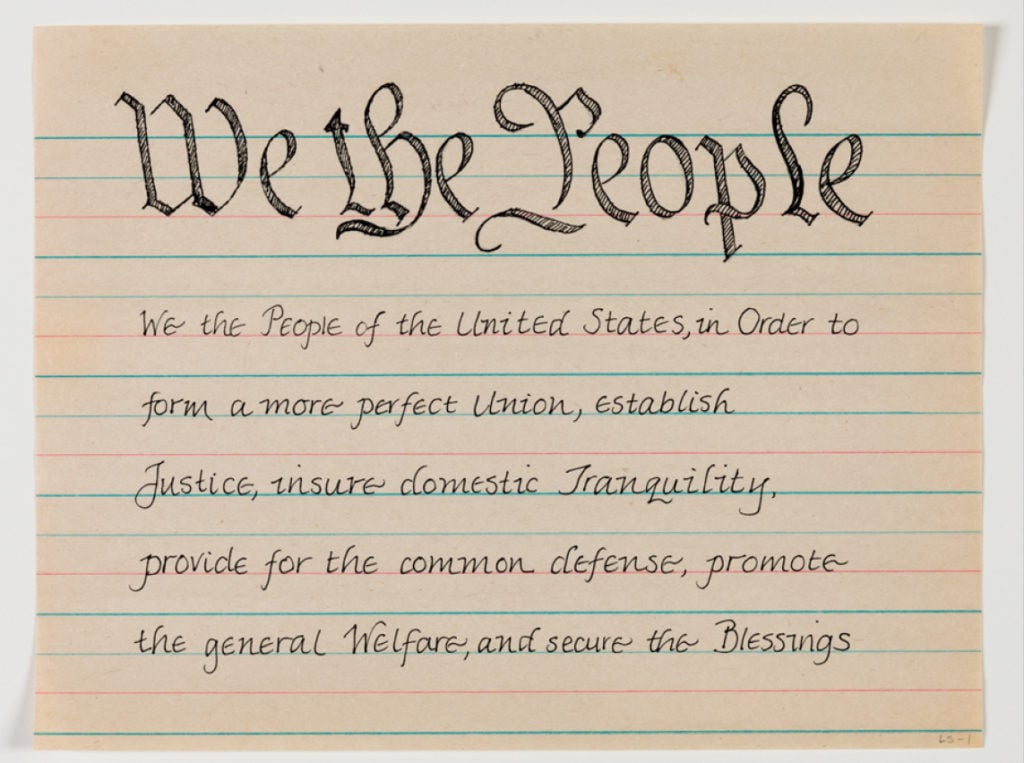 We the People
We the People of the United States, in Order to
form a more perfect Union, establish
Justice, insure domestic Tranquility,
provide for the common defense, promote
the general Welfare, and secure the Blessings
LS-1